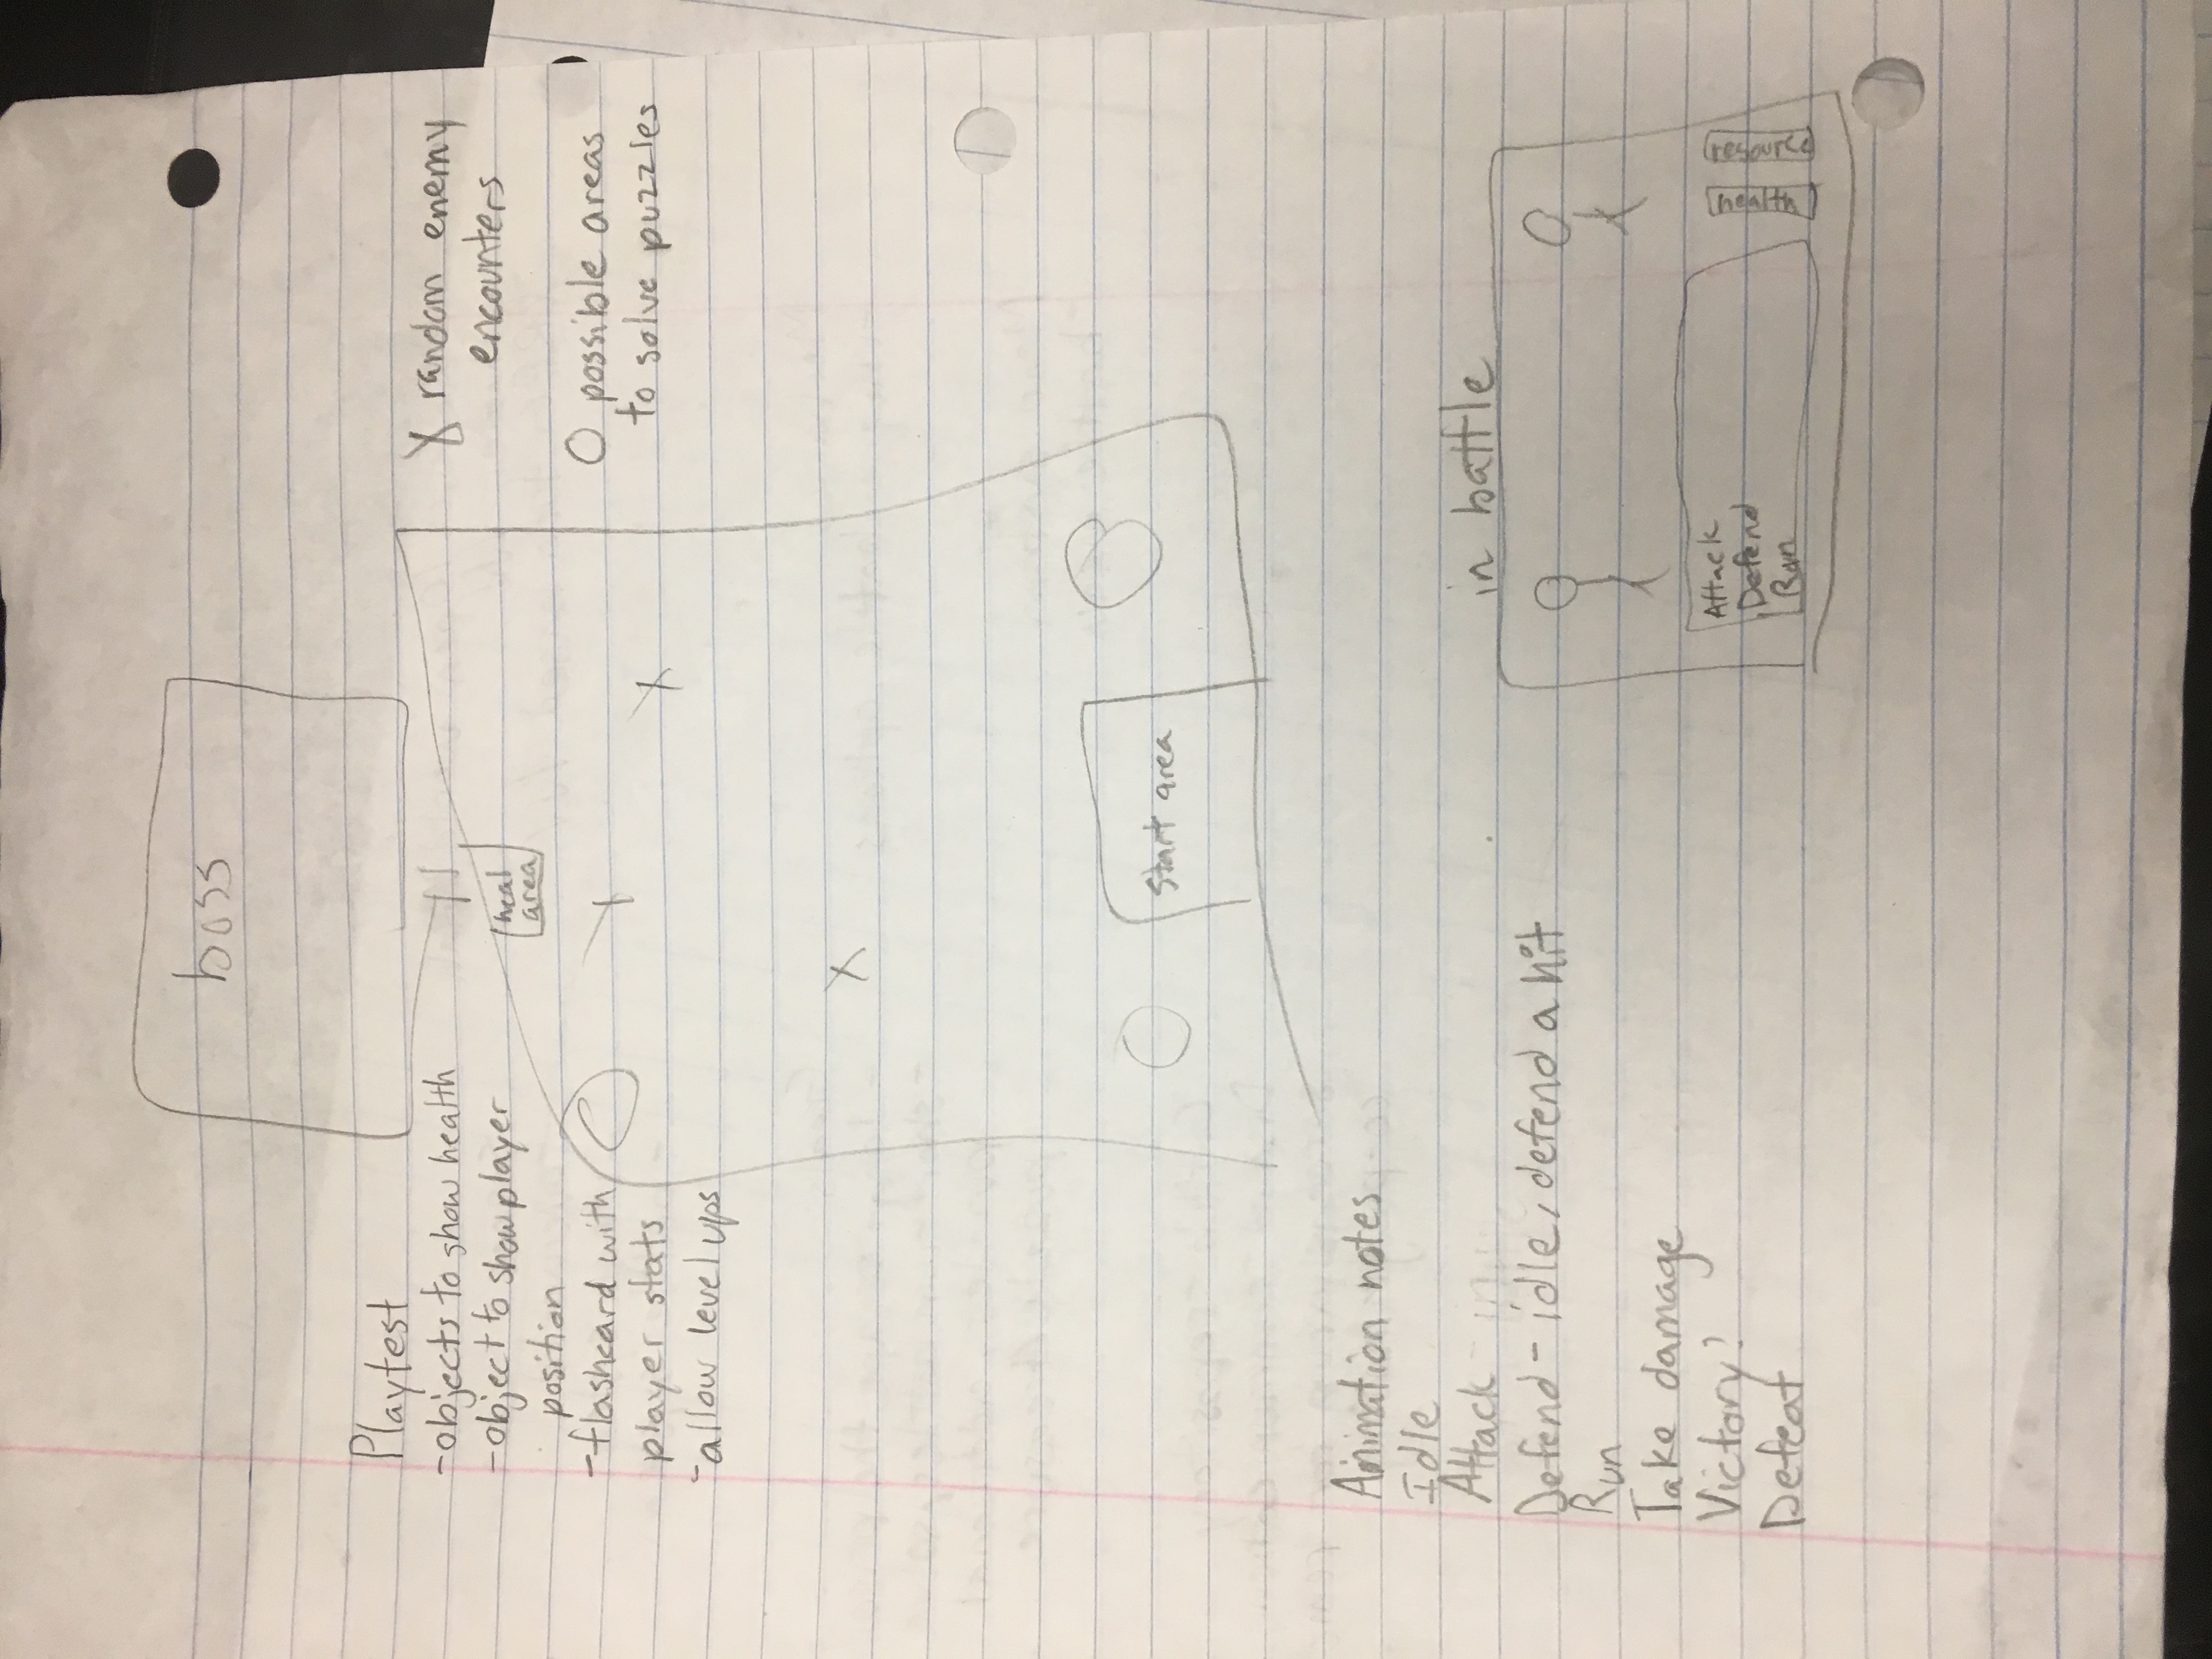 boss
Playtest
-objects to show health
-object to show player
position
-flashcard with
player stats
-allow level ups
heal
area
X random enemy
encounters
O possible areas
to solve puzzles
Start area
Animation notes
Idle
Attack
Defend - idle, defend a hit
Run
Take damage
Victory?
Defeat
in battle
Attack
Defend
Run
health
resource